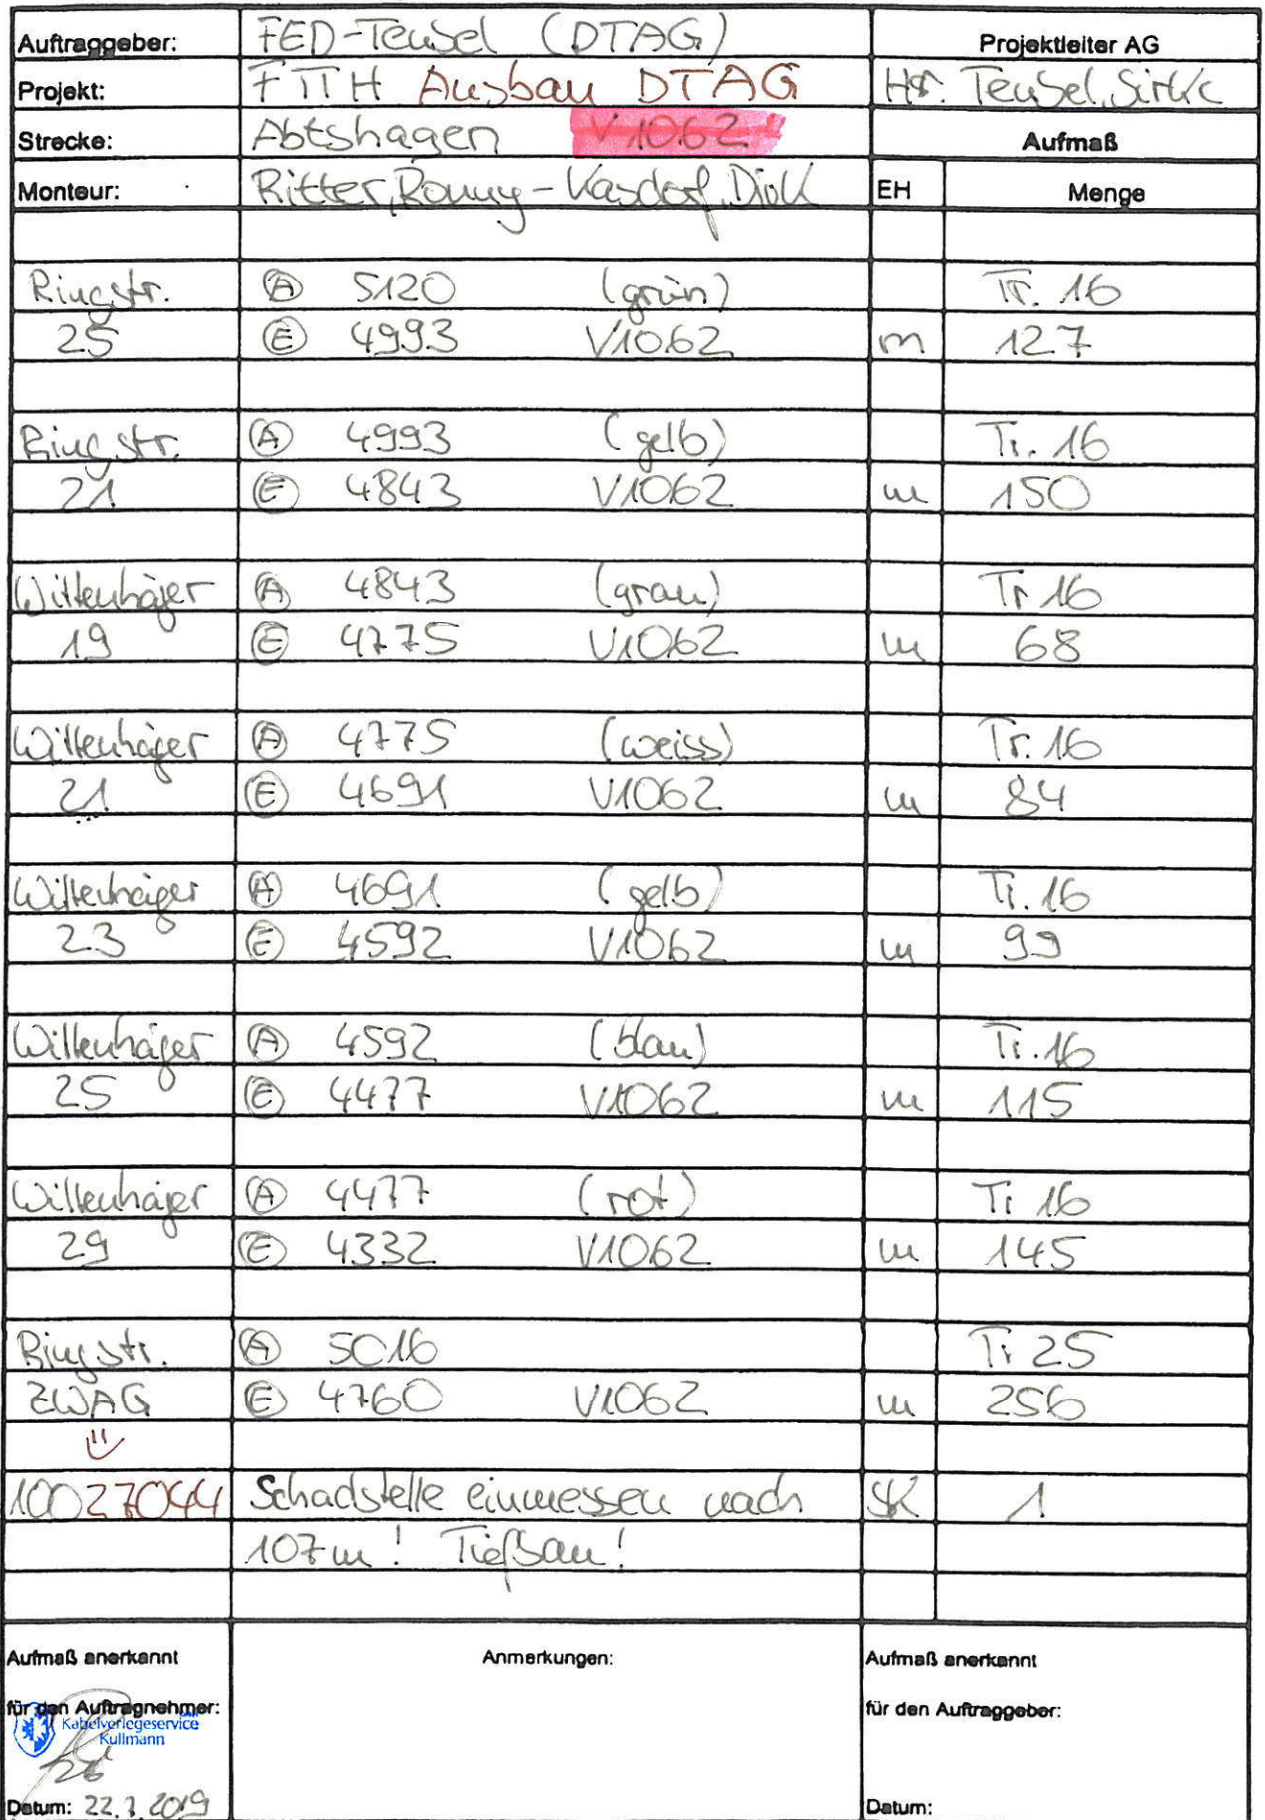 Auftraggeber: FED-Teubel (DTAG) Projektleiter AG
Projekt: FTTH Ausbau DTAG Hr. Teubel, Sirkk
Strecke: Abtshagen V1062 Aufmaß
Monteur: Ritter, Ronny - Kasdorf, Dirk EH Menge
Ringstr. (A) 5120 (grün) Tr. 16
25 (E) 4993 V1062 m 127
Ringstr. (A) 4993 (gelb) Tr. 16
21 (E) 4843 V1062 m 150
Wittenhäger (A) 4843 (grau) Tr 16
19 (E) 4775 V1062 m 68
Wittenhäger (A) 4775 (weiss) Tr. 16
21 (E) 4691 V1062 m 84
Wittenhäger (A) 4691 (gelb) Tr. 16
23 (E) 4592 V1062 m 99
Wittenhäger (A) 4592 (blau) Tr. 16
25 (E) 4477 V1062 m 115
Wittenhäger (A) 4477 (rot) Tr 16
29 (E) 4332 V1062 m 145
Ringstr. (A) 5016 Tr 25
ZWAG (E) 4760 V1062 m 256
10027044 Schadstelle einmessen nach SK 1
107m! Tiefbau!
Aufmaß anerkannt Anmerkungen: Aufmaß anerkannt
für den Auftragnehmer: für den Auftraggeber:
Kabelverlegeservice
Kullmann
Datum: 22.7.2019 Datum: